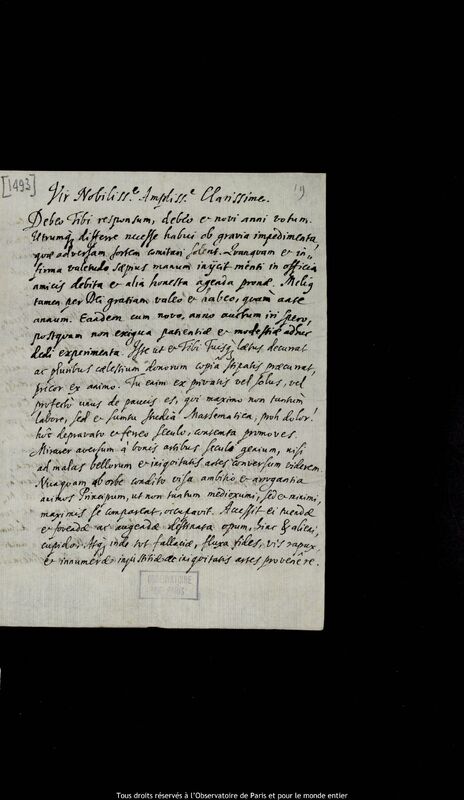 [1493]
19
Vir Nobiliss.e Ampliss.e Clarissime.
Debeo Tibi responsum, debeo et novi anni votum.
Utrumq; differre necesse habui ob gravia impedimenta,
quæ adversam sortem comitari solent. Quanquam et in„
firma valetudo sæpius manum injicit menti in officia
amicis debita et alia honesta agenda pronæ. Meliq
tamen per Dei gratiam valeo et habeo, quam ante
annum. Eandem cum novo, anno auctum iri spero,
postquam non exigua patientiæ et modestiæ adhuc
dedi experimenta. Iste ut et Tibi Tuisq; lætus decurrat
ac pluribus cælestium donorum copia stipatus recurrat,
precor ex animo. Tu enim ex privatis vel solus, vel
profecto unus de paucis es, qui maximo non tantum
labore, sed et sumtu studia Mathematica, proh dolor!
hoc depravato et ferreo sæculo, contenta promoves.
Miraver aversum à bonis artibus sæculi genium, nisi
ad malas bellorum et iniquitatis artes conversum viderem.
Nunquam ab orbe condito visa ambitio et arrogantia
animos Principum, ut non tantum mediocrium, sed et minimi,
maximis se comparent, occupavit. Accessit ei tuendæ
et fovendæ ac augendæ destinata opum, hinc & alieni,
cupido. Atq; inde tot fallaciæ, fluxa fides, vis rapax
et innumeræ injustitiæ et iniquitatis artes provenêre.
OBSERVATOIRE
DE PARIS
Tous droits réservés à l'Observatoire de Paris et pour le monde entier